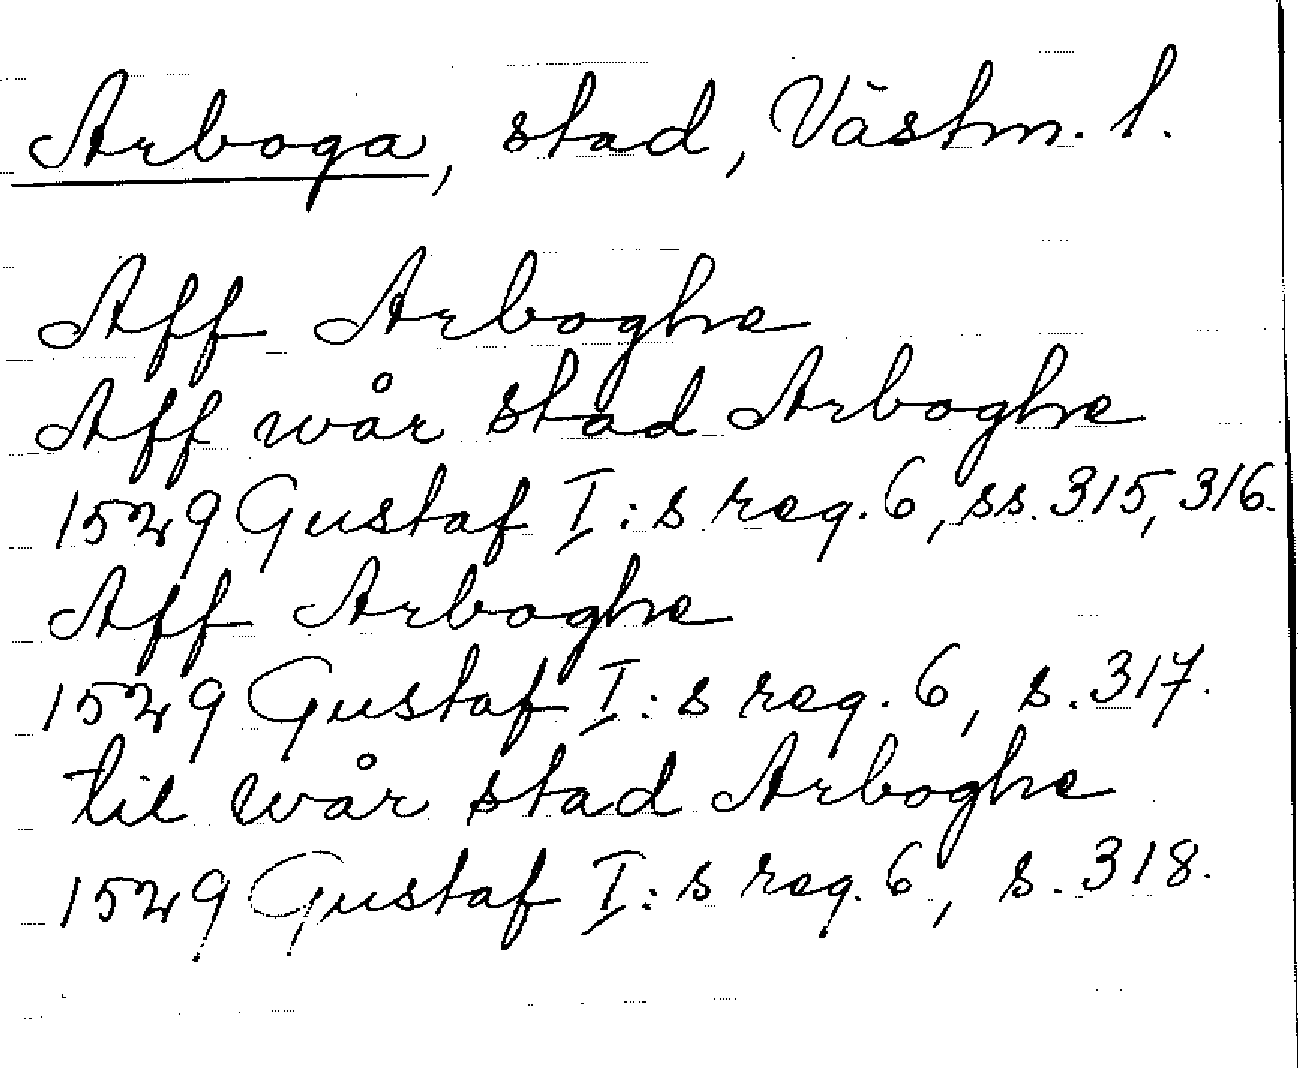 Arboga, stad, Västm. l.
Aff Arboghe
Aff wår stad Arboghe
1529 Gustaf I:s reg. 6, ss. 315, 316.
Aff Arboghe
1529 Gustaf I:s reg. 6, s. 317.
til wår stad Arboghe
1529 Gustaf I:s reg. 6, s. 318.